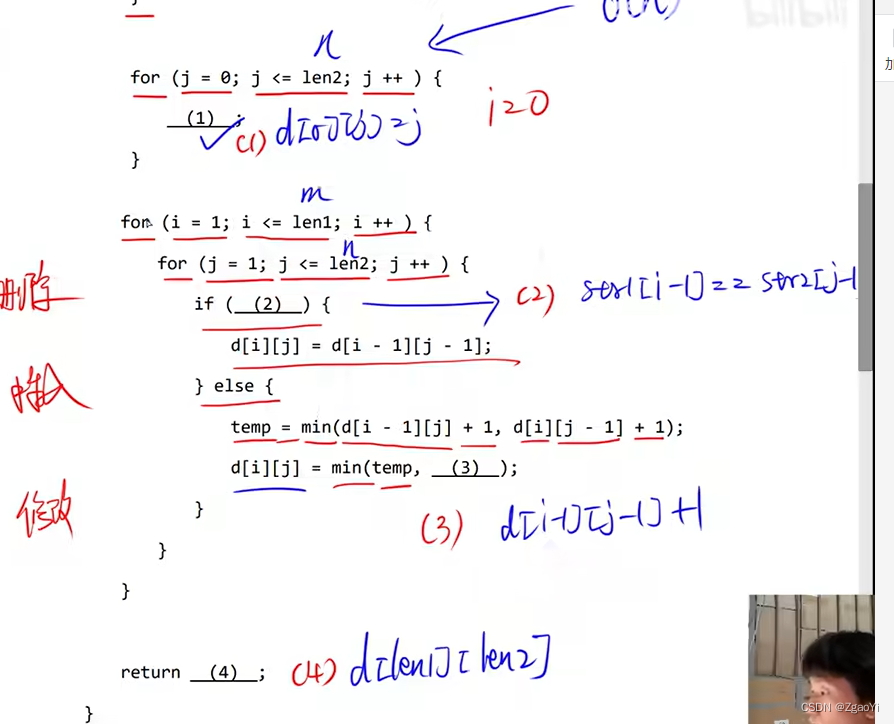 }
O(n)
n
for (j = 0; j <= len2; j ++ ) {
(1) ;
(1) d[0][j] = j
i=0
}
m
for (i = 1; i <= len1; i ++ ) {
n
for (j = 1; j <= len2; j ++ ) {
删除
if ( (2) ) {
(2) str1[i-1]==str2[j-1
d[i][j] = d[i - 1][j - 1];
插入
} else {
temp = min(d[i - 1][j] + 1, d[i][j - 1] + 1);
d[i][j] = min(temp, (3) );
修改
}
(3) d[i-1][j-1]+1
}
}
return (4) ;
(4) d[len1][len2]
}
bilibili
加
CSDN @ZgaoYi